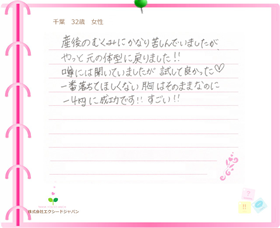 千葉　32歳　女性
産後のむくみにかなり苦しんでいましたが
やっと元の体型に戻りました!!
噂には聞いていましたが試して良かった♡
一番落ちてほしくない胸はそのままなのに
-4㎏に成功です!!すごい!!
株式会社エクシードジャパン